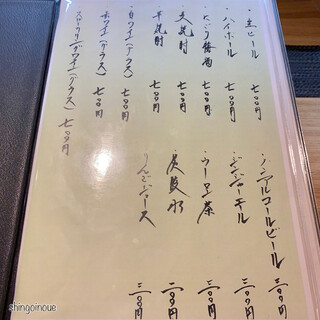 ・生ビール 七〇〇円
・ハイボール 七〇〇円
・にごり梅酒 七〇〇円
・麦焼酎 七〇〇円
・芋焼酎 七〇〇円
・白ワイン(グラス) 七〇〇円
・赤ワイン(グラス) 七〇〇円
・スパークリングワイン(グラス) 七〇〇円
・ノンアルコールビール 五〇〇円
・ジンジャーエール 三〇〇円
・ウーロン茶 三〇〇円
・炭酸水 二〇〇円
りんごジュース 三〇〇円
shingoinoue